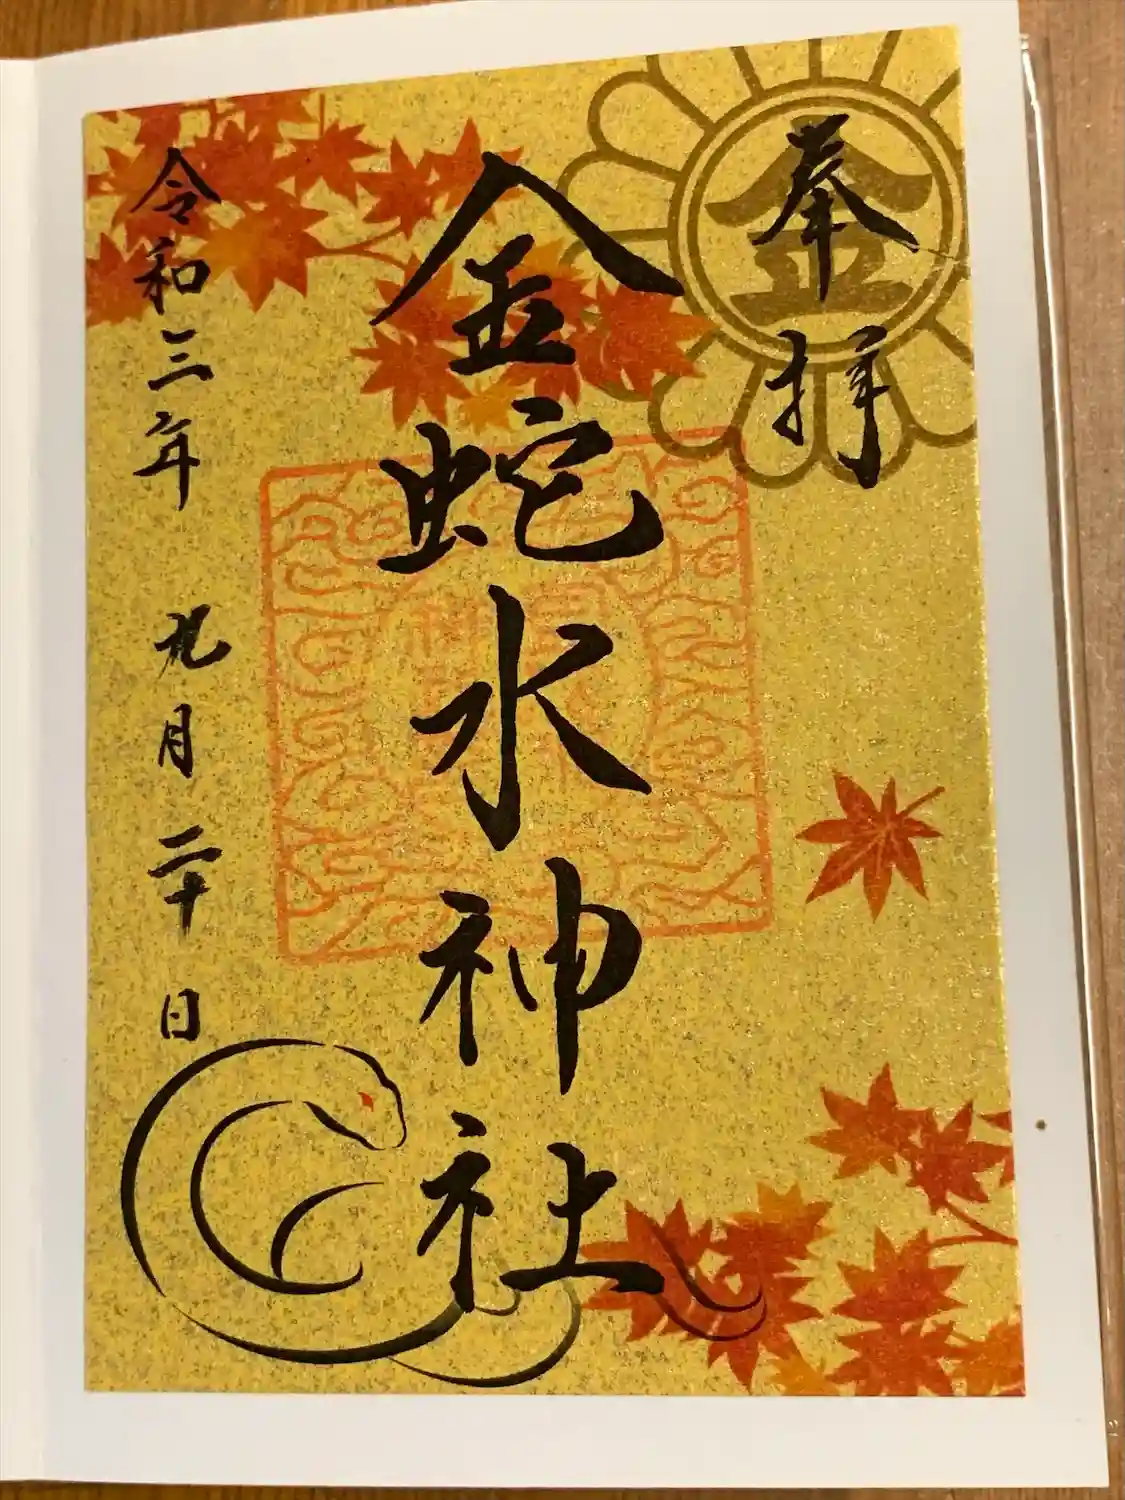 奉拝
金
金蛇水神社
令和三年 九月二十日